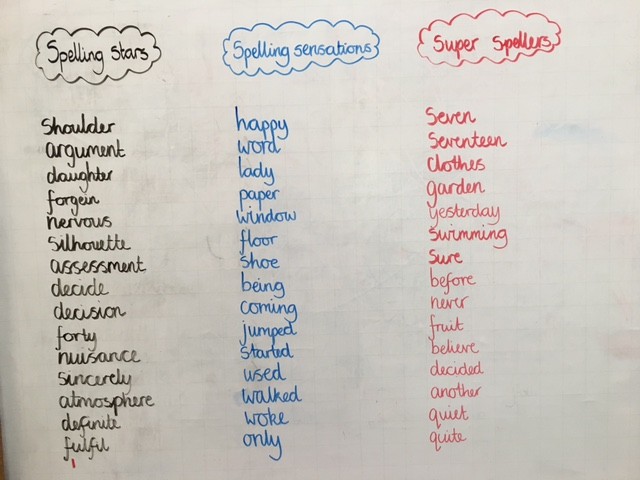 Spelling stars
shoulder
argument
daughter
forgein
nervous
silhouette
assessment
decide
decision
forty
nuisance
sincerely
atmosphere
definite
fulful
Spelling sensations
happy
word
lady
paper
window
floor
shoe
being
coming
jumped
started
used
walked
woke
only
Super spellers
Seven
Seventeen
Clothes
garden
yesterday
Swimming
Sure
before
never
fruit
believe
decided
another
quiet
quite